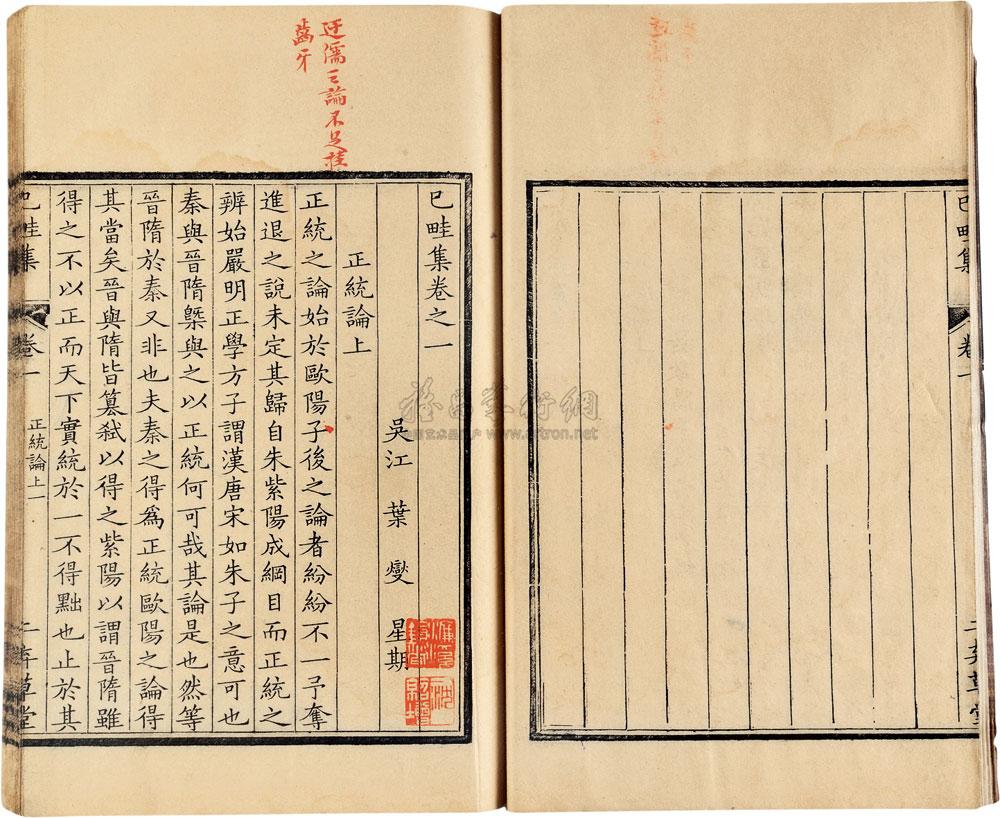 已畦集 卷一 二弃草堂
迂儒之論不足挂
齒牙
已畦集卷之一
吳江 葉燮 星期
正統論上
正統之論始於歐陽子後之論者紛紛不一予奪
進退之說未定其歸自朱紫陽成綱目而正統之
辨始嚴明正學方子謂漢唐宋如朱子之意可也
秦與晉隋槩與之以正統何可哉其論是也然等
晉隋於秦又非也夫秦之得爲正統歐陽之論得
其當矣晉與隋皆篡弒以得之紫陽以謂晉隋雖
得之不以正而天下實統於一不得黜也止於其
已畦集 卷一 正統論上一 二弃草堂
www.artron.net